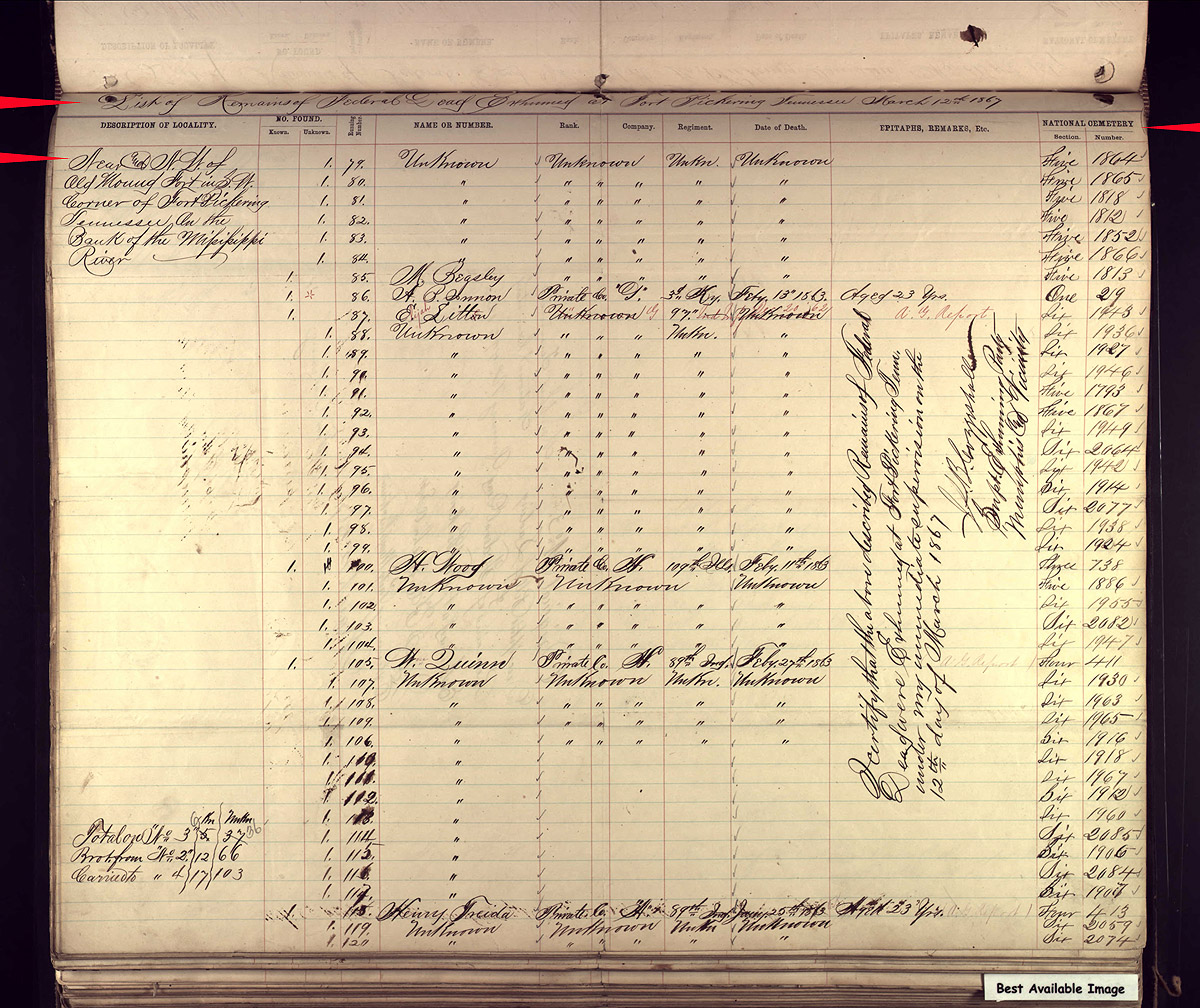 List of Remains of Federal Dead Exhumed at Fort Pickering Tennessee March 12th 1867
DESCRIPTION OF LOCALITY. NO. FOUND. Known. Unknown. Running Number. NAME OR NUMBER. Rank. Company. Regiment. Date of Death. EPITAPHS, REMARKS, Etc. NATIONAL CEMETERY Section. Number.
Near End N.W. of 1. 79. Unknown Unknown Unkn. Unknown Five 1864
Old Mound Fort in S.W. 1. 80. " " " " " " Five 1865
Corner of Fort Pickering 1. 81. " " " " " " Five 1818
Tennessee On the 1. 82. " " " " " " Five 1812
Bank of the Missisippi 1. 83. " " " " " " Five 1852
River 1. 84. " " " " " " Five 1866
1. 85. M. Beasley " " " " " Five 1813
1. 86. A. P. Innon Private Co. "D". 3d Ky. Feby. 13th 1863. Aged 23 Yrs. One 29
1. 87. E. Litton Unknown G 97. Unknown A. G. Report Six 1943
1. 88. Unknown " " " Unkn. " Six 1936
1. 89. " " " " " " Six 1927
1. 90. " " " " " " Six 1946
1. 91. " " " " " " Five 1793
1. 92. " " " " " " Five 1867
1. 93. " " " " " " Six 1949
1. 94. " " " " " " Six 2064
1. 95. " " " " " " Six 1942
1. 96. " " " " " " Six 1914
1. 97. " " " " " " Six 2077
1. 98. " " " " " " Six 1938
1. 99. " " " " " " Six 1924
1. 100. H. Wood Private Co. H. 109th Ills. Feby. 11th 1863 Three 738
1. 101. Unknown Unknown Unknown Five 1886
1. 102. " " " " " " Six 1955
1. 103. " " " " " " Six 2082
1. 104. " " " " " " Six 1947
1. 105. W. Quinn Private Co. H. 89th Ind. Feby. 27th 1863 A. G. Report Four 411
1. 107. Unknown Unknown Unkn. Unknown Six 1930
1. 108. " " " " " " Six 1963
1. 109. " " " " " " Six 1965
1. 106. " " " " " " Six 1916
1. 110. " Six 1918
1. 111. " Six 1967
1. 112. " Six 1912
1. 113. " Six 1960
Kn Unkn
Total on No 3 5 37 36 1. 114. " Six 2085
Brot from "No 2" 12 66 1. 115. " Six 1906
Carried to " 4 17 103 1. 116. " Six 2084
1. 117. " Six 1907
1. 118. Henry Freida Private Co. H. 89th Ind. Jany. 25th 1863 Aged 23 Yrs. A. G. Report Four 413
1. 119. Unknown Unknown Unkn Unknown Six 2059
1. 120 " " " " " " Six 2074
I certify that the above describd Remains of Federal
Dead were Exhumed at Fort Pickering Tenn.
under my immediate supervision on the
12th day of March 1867
Supt. Exhuming Party
Memphis and Vicinity
Best Available Image